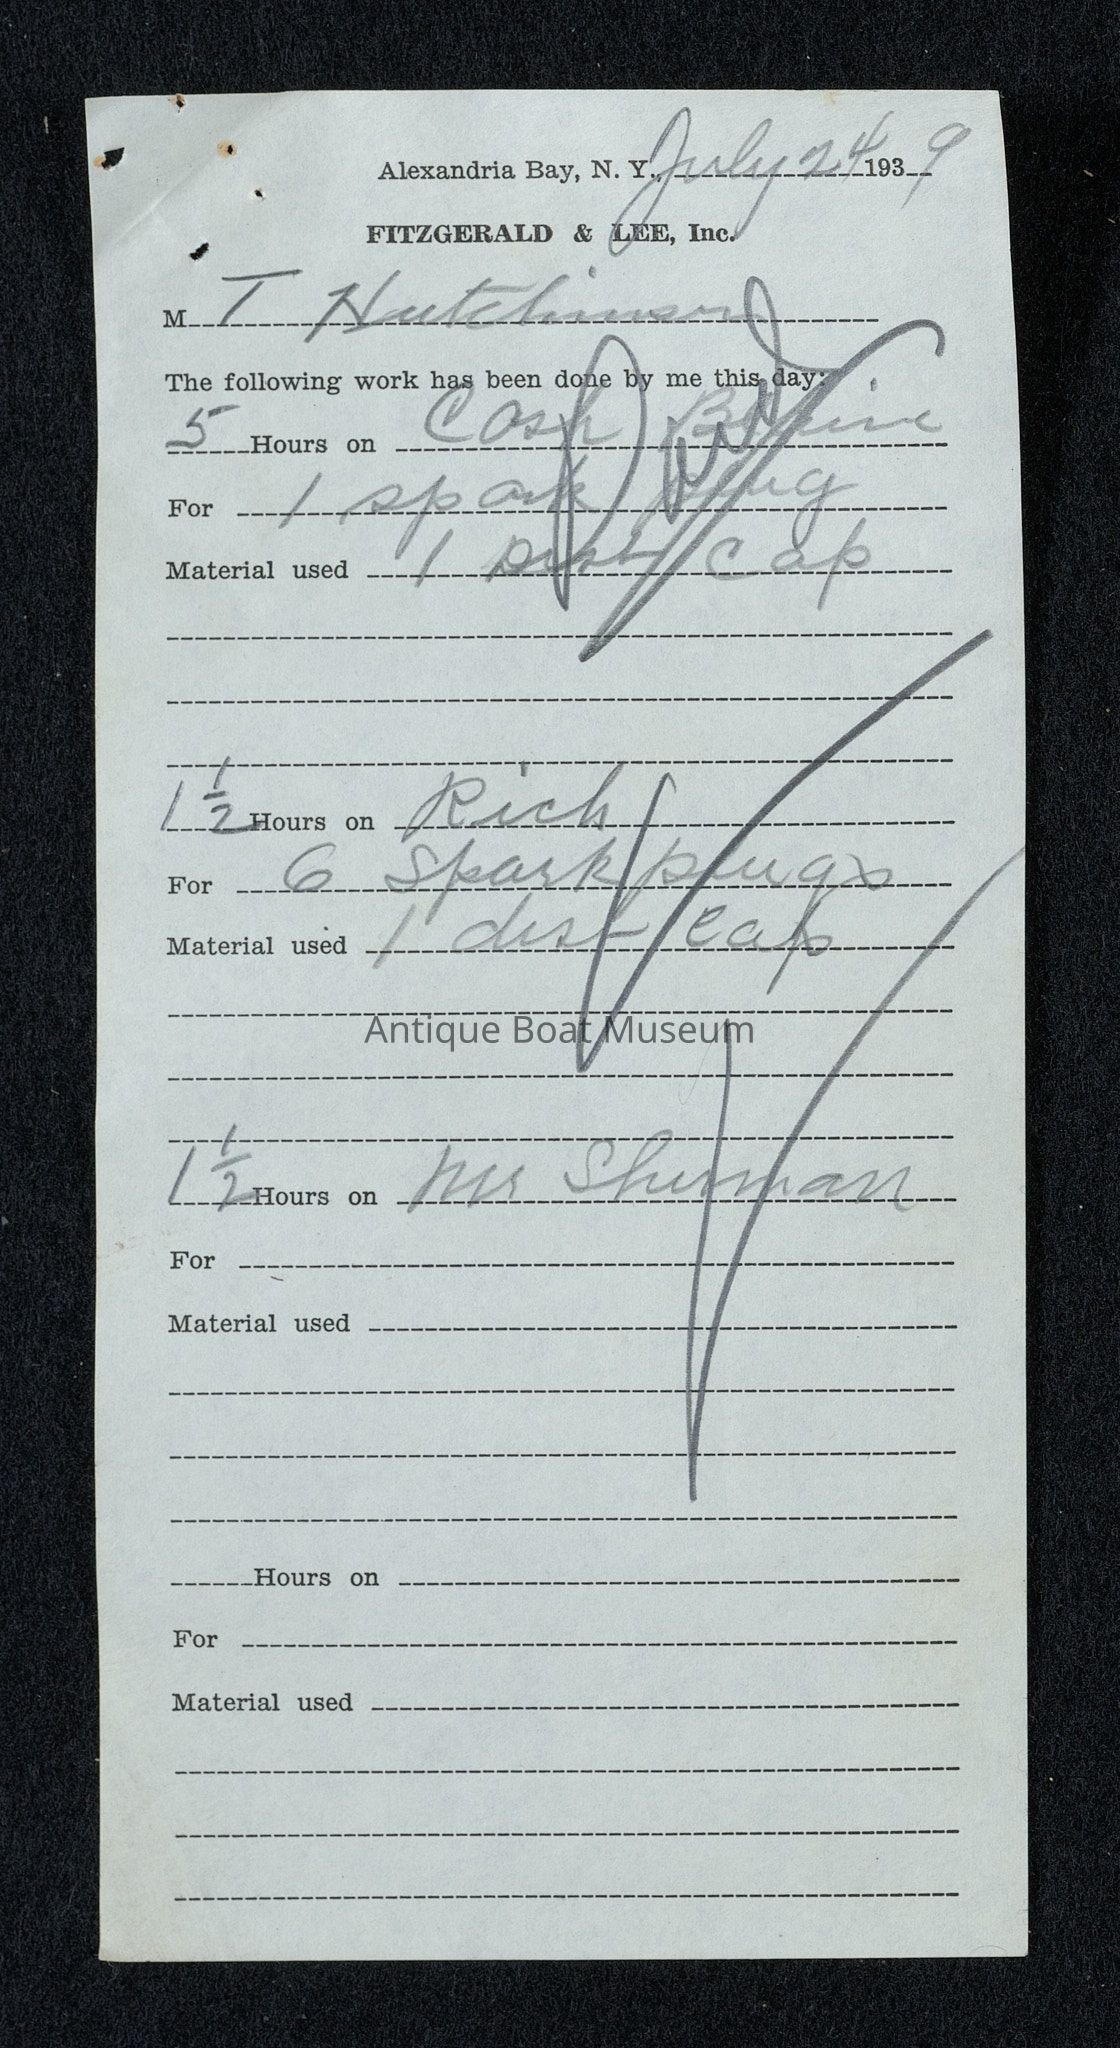 Alexandria Bay, N. Y., July 24 1939
FITZGERALD & LEE, Inc.
M T Hutchinson
The following work has been done by me this day:
5 Hours on Cash
For 1 spark plug
Material used 1 Dist Cap
1 1/2 Hours on Rich
For 6 Spark plugs
Material used 1 dist cap
Antique Boat Museum
1 1/2 Hours on Mr Sherman
For
Material used
Hours on
For
Material used